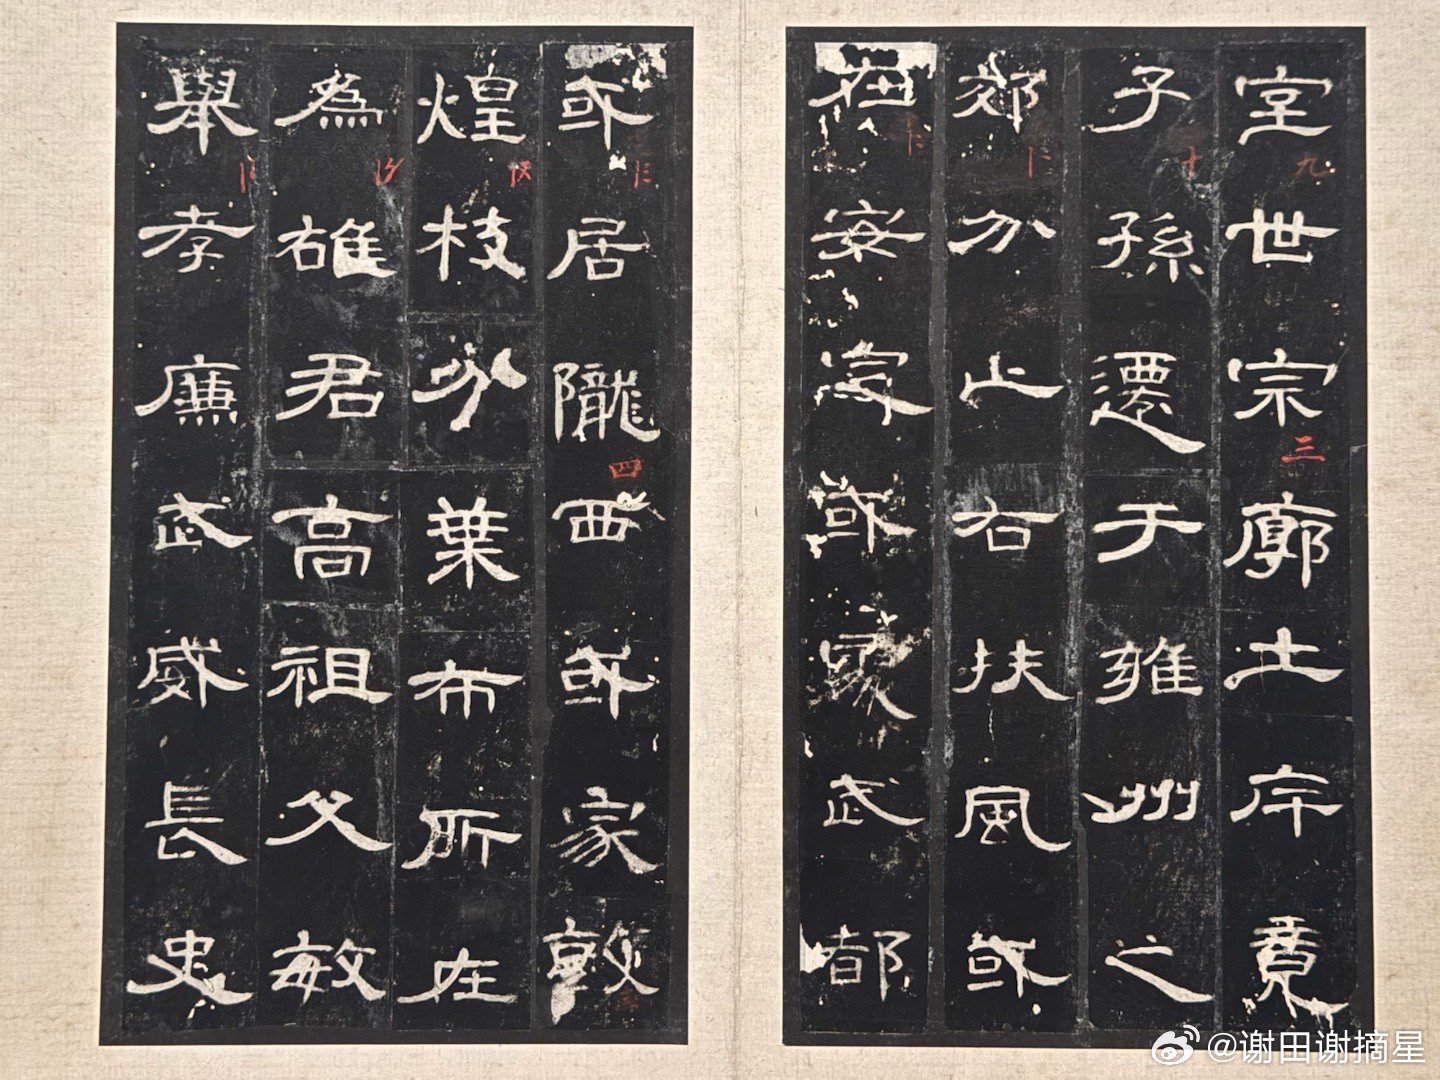 室世宗廓土斥竟
子孫遷于雍州之
郊分止右扶風或
在安定或處武都
或居隴西或家敦
煌枝分葉布所在
為雄君高祖父敏
舉孝廉武威長史
九
三
十
四
@谢田谢摘星